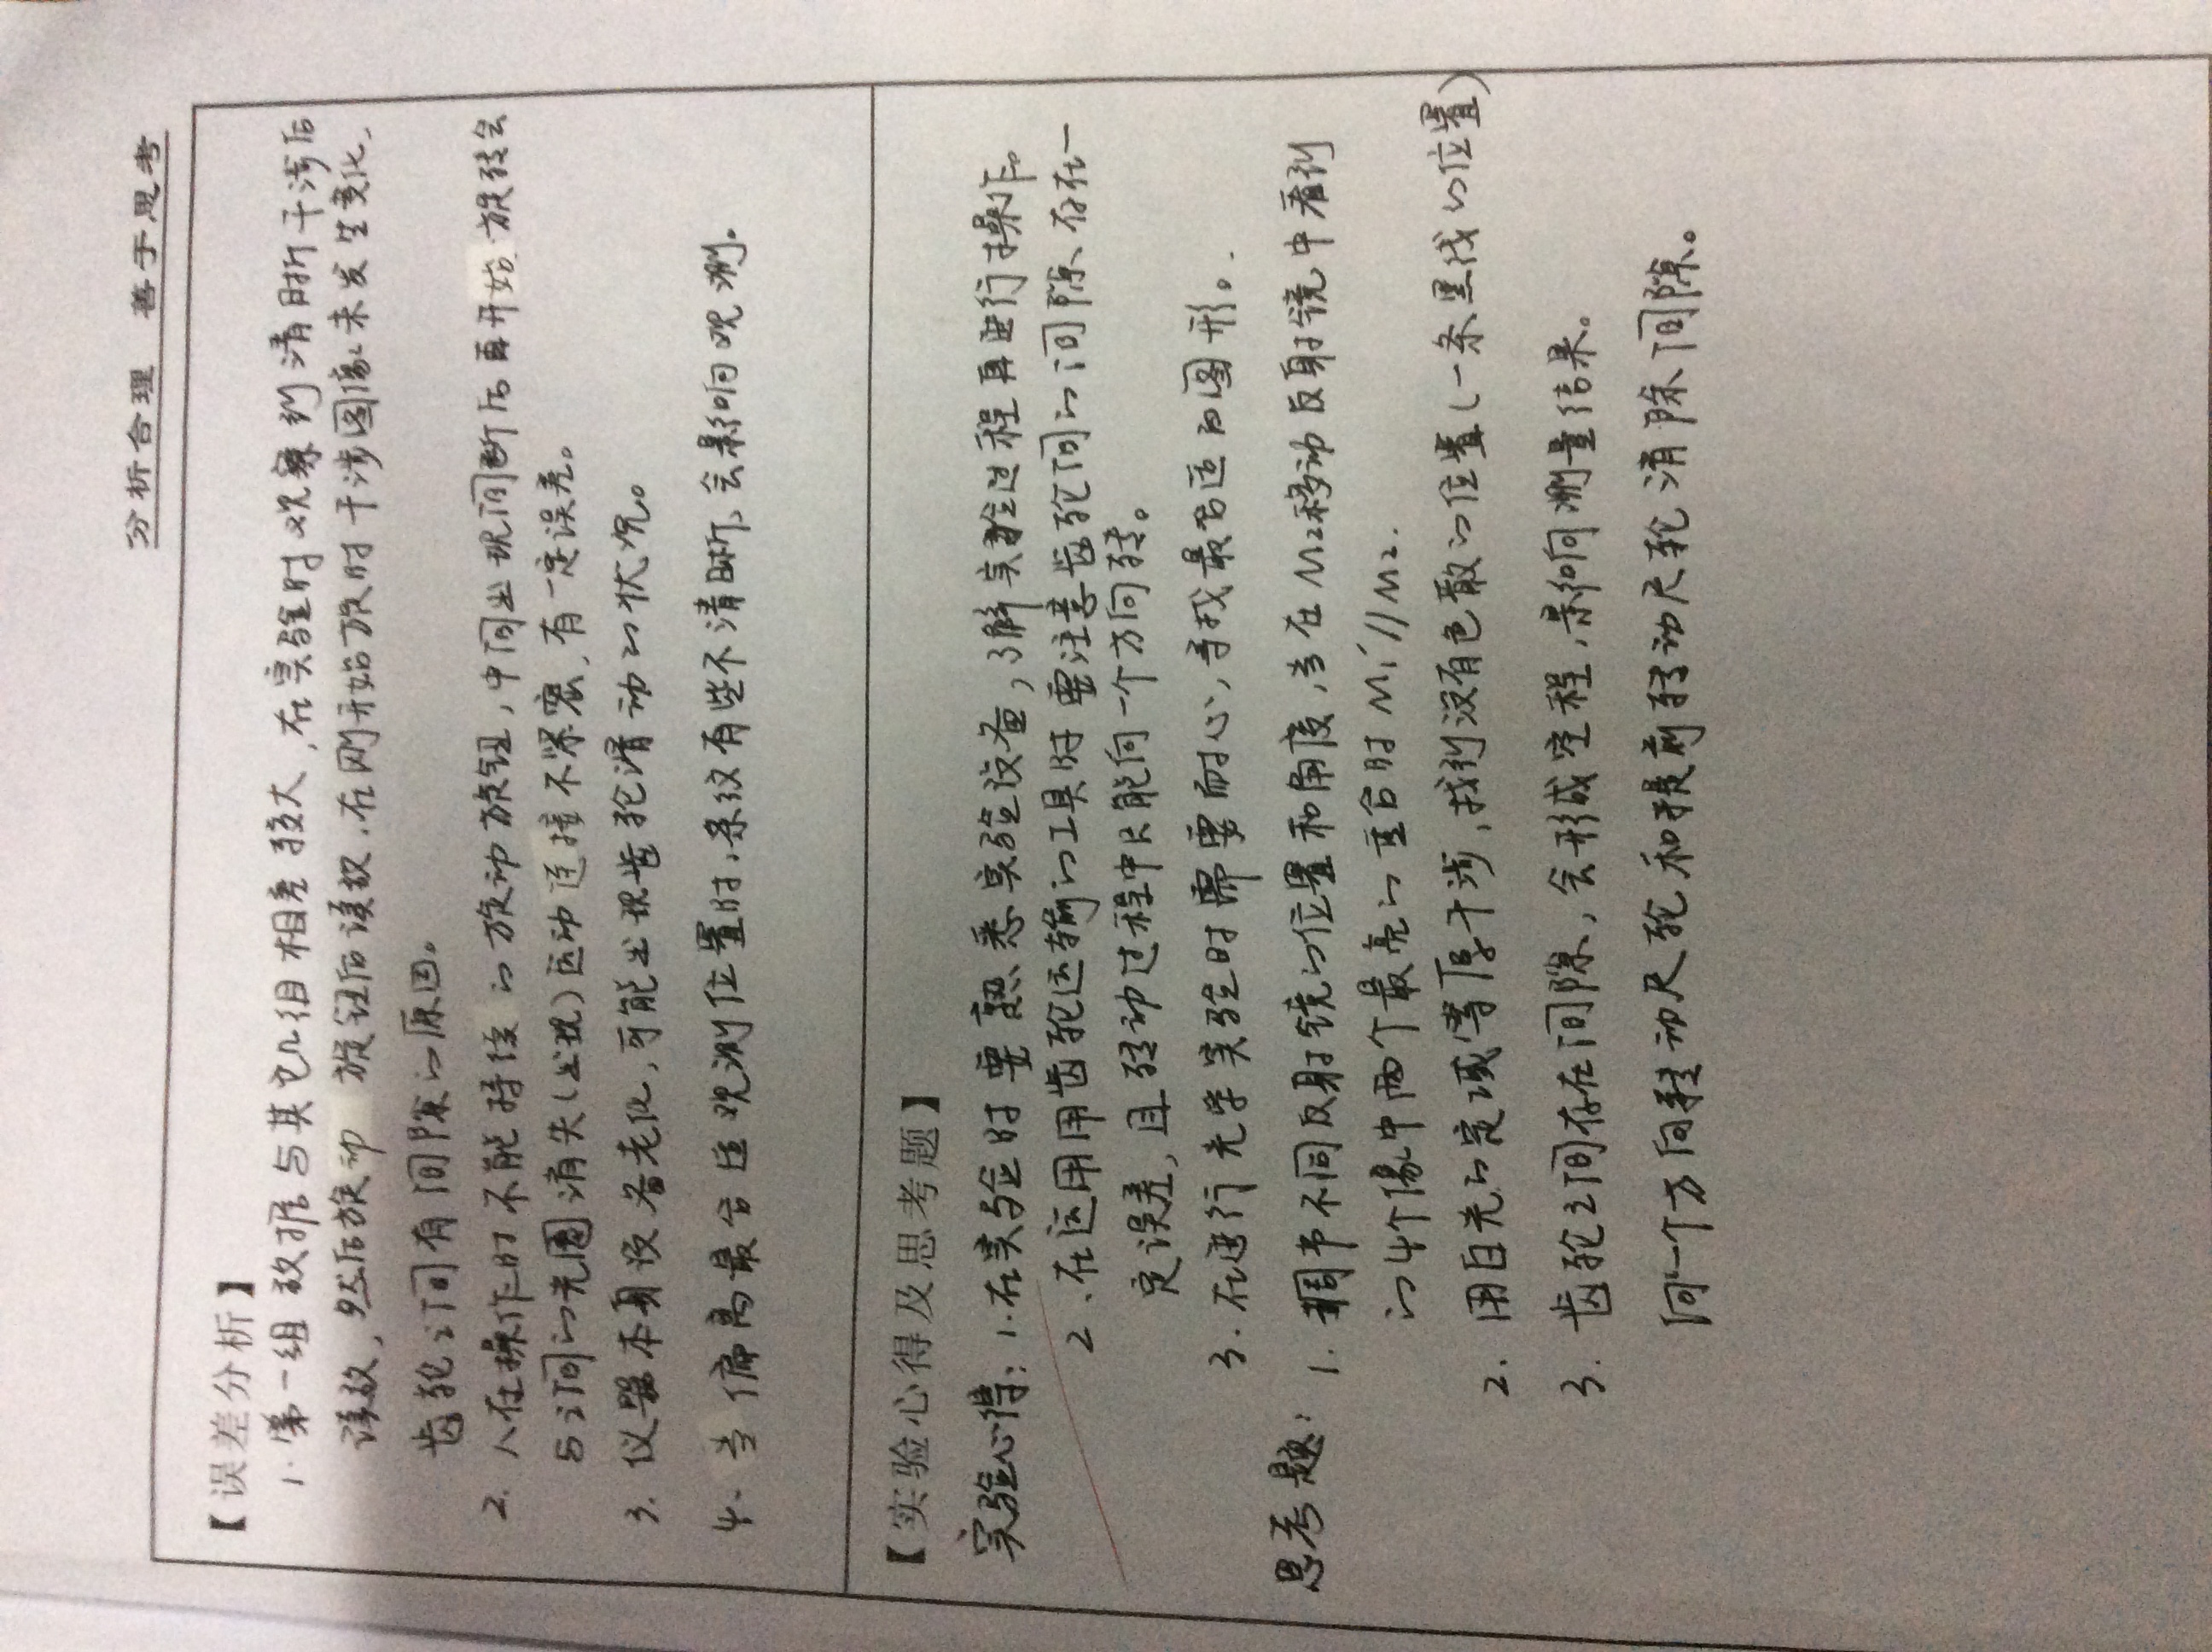 分析合理 善于思考
【误差分析】
1. 第一组数据与其它几组相差较大,在实验时观察到清晰干涉后
读数,然后旋动 旋钮后读数.在刚开始旋时干涉图像未发生变化,
齿轮之间有间隙的原因。
2. 人在操作时不能持续的旋动旋钮,中间出现间断后再开始旋转会
与之间的光圈消失(出现)运动连接不紧密,有一定误差。
3. 仪器本身设备老化,可能出现齿轮滑动的状况。
4. 当偏离最合适观测位置时,条纹有些不清晰,会影响观测。
【实验心得及思考题】
实验心得: 1.在实验时要熟悉实验设备,了解实验过程再进行操作。
2、在运用用齿轮运输的工具时要注意齿轮间的间隙存在一
定误差,且转动过程中只能向一个方向转。
3. 在进行光学实验时需要耐心,寻找最合适的图形。
思考题: 1. 调节不同反射镜的位置和角度,当在M2移动反射镜中看到
的4个像中两个最亮的重合时M1′//M2.
2. 用白光的定域等厚干涉,找到没有色散的位置(一条黑线的位置)
3. 齿轮之间存在间隙,会形成空程,影响测量结果。
向一个方向转动尺轮和提前转动尺轮消除间隙。